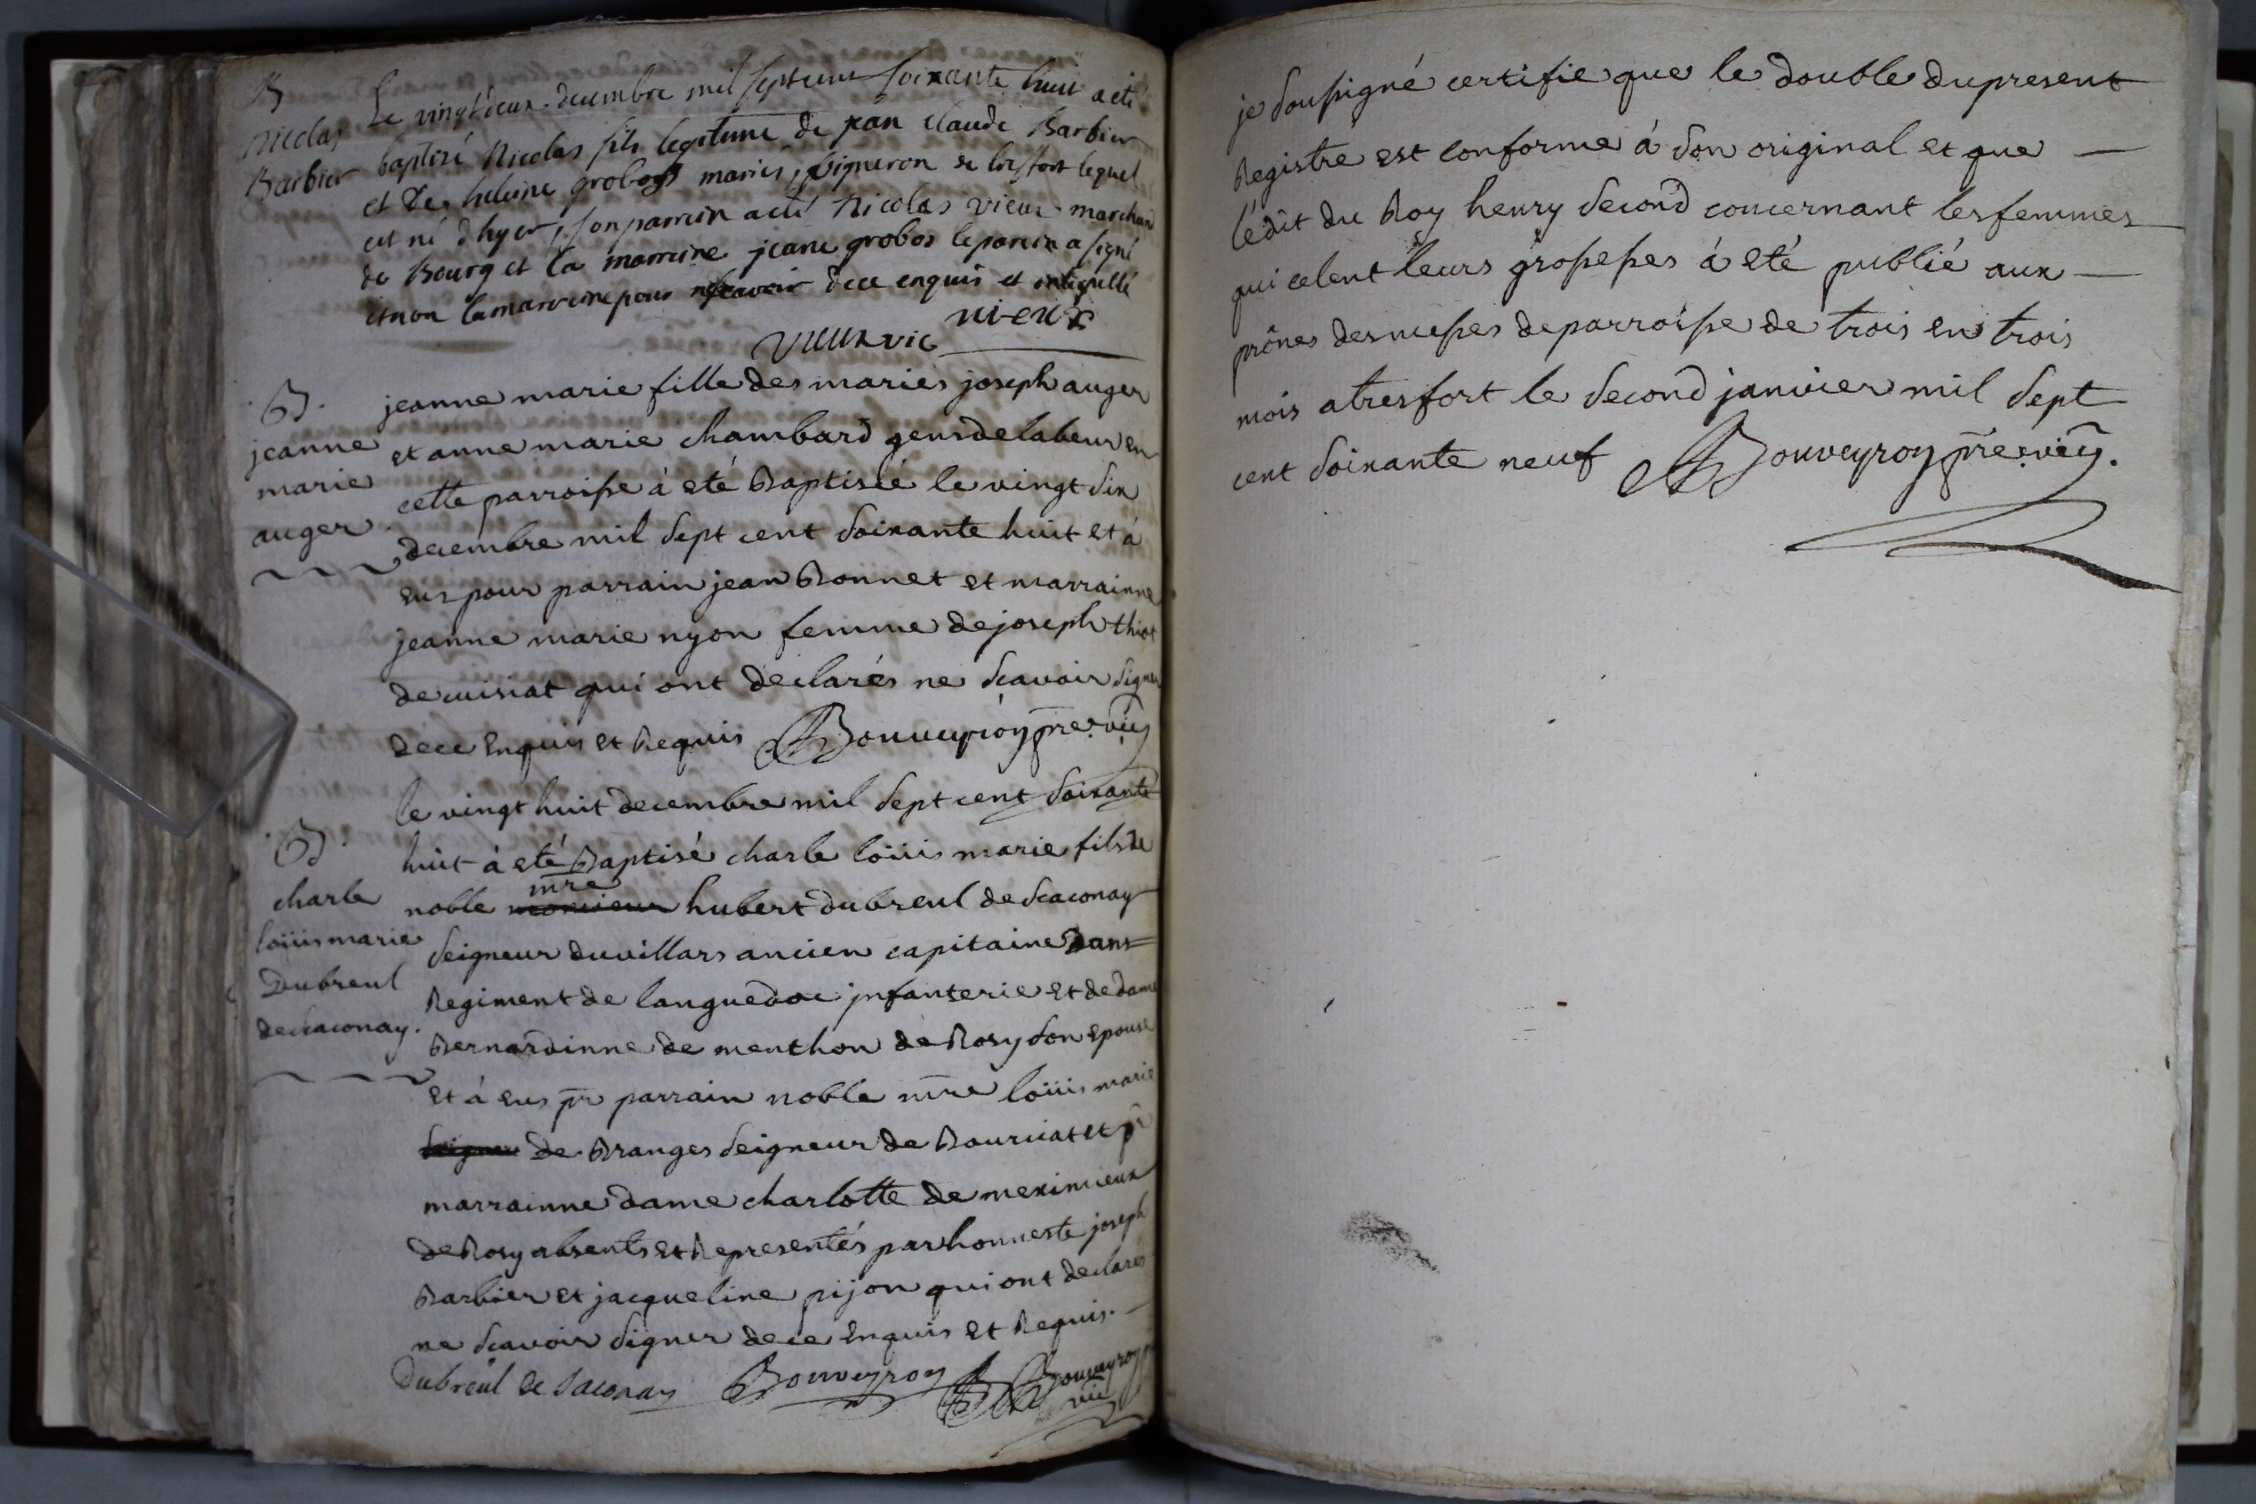 B
Nicolas
Barbier
Le vingt deux decembre mil sept cent soixante huit a été
baptisé Nicolas fils legitime de jean claude Barbier
et de heleine grobos mariés, vigneron de tresfort lequel
est né d'hyer, son parrein a été Nicolas vieux marchand
de Bourg et la marreine jeane grobos le parein a signé
et non la marreine pour ne scavoir de ce enquis et interpellé
vieux
vieux vic
B.
jeanne
marie
auger
jeanne marie fille des mariés joseph auger
et anne marie chambard gens de labeur en
cette parroisse à eté Baptisée le vingt six
decembre mil sept cent soixante huit et à
eus pour parrain jean Bonnet et marrainne
jeanne marie nyon femme de joseph
de cuisiat qui ont declarés ne scavoir signer
de ce enquis et Requis Bouveyron pre. vic
B
charle
loüis marie
Dubreul
de sacconay.
le vingt huit decembre mil sept cent soixante
huit à eté Baptisé charle loüis marie fils de
mre
noble monsieur hubert dubreul de sacconay
seigneur du villars ancien capitaine dans
Regiment de languedoc infanterie et de dame
Bernardinne de menthon de Rosy son epouse
et à eus pr parrain noble mre loüis marie
seigneur de Branges seigneur de Bourciat et pr
marrainne dame charlotte de meximieux
de Rosy absents et Representés par honneste joseph
Barbier et jacqueline pijon qui ont declarés
ne scavoir signer de ce enquis et Requis.
Dubreul de Saconay Bouveyron Bouveyron
vic
je soussigné certifie que le double du present
Registre est conforme à son original et que
l'édit du Roy henry second concernant les femmes
qui celent leurs grossesses à eté publié aux
prônes des messes de parroisse de trois en trois
mois a tresfort le second janvier mil sept
cent soixante neuf Bouveyron pre. vic.